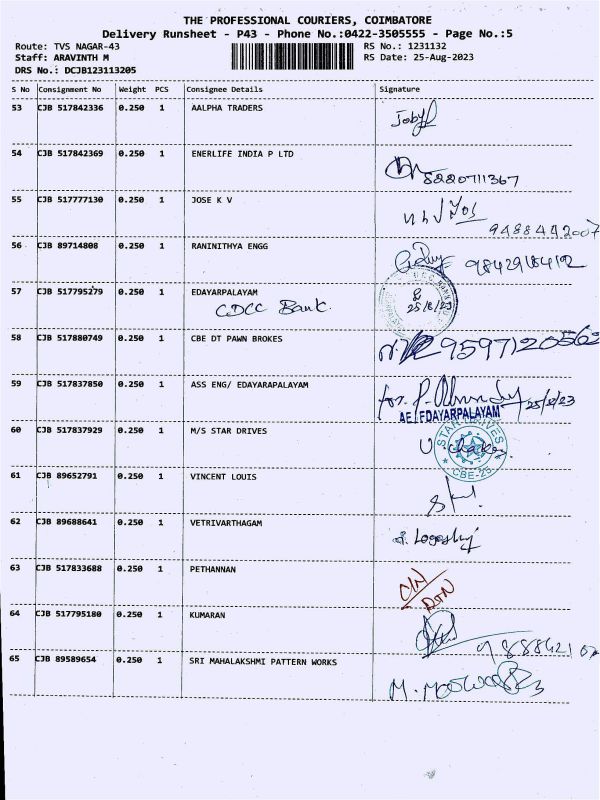 THE PROFESSIONAL COURIERS, COIMBATORE
Delivery Runsheet - P43 - Phone No.:0422-3505555 - Page No.:5
Route: TVS NAGAR-43 RS No.: 1231132
Staff: ARAVINTH M RS Date: 25-Aug-2023
DRS No.: DCJB123113205
S No Consignment No Weight PCS Consignee Details Signature
53 CJB 517842336 0.250 1 AALPHA TRADERS Joby
54 CJB 517842369 0.250 1 ENERLIFE INDIA P LTD 8220711367
55 CJB 517777130 0.250 1 JOSE K V
9488442007
56 CJB 89714808 0.250 1 RANINITHYA ENGG 9842918412
57 CJB 517795279 0.250 1 EDAYARPALAYAM
CDCC Bank. 25/8/23
58 CJB 517880749 0.250 1 CBE DT PAWN BROKES 9597120562
59 CJB 517837850 0.250 1 ASS ENG/ EDAYARAPALAYAM for. 25/8/23
AE / EDAYARPALAYAM
60 CJB 517837929 0.250 1 M/S STAR DRIVES STAR DRIVES
CBE-25
61 CJB 89652791 0.250 1 VINCENT LOUIS
62 CJB 89688641 0.250 1 VETRIVARTHAGAM
63 CJB 517833688 0.250 1 PETHANNAN
64 CJB 517795180 0.250 1 KUMARAN
65 CJB 89589654 0.250 1 SRI MAHALAKSHMI PATTERN WORKS